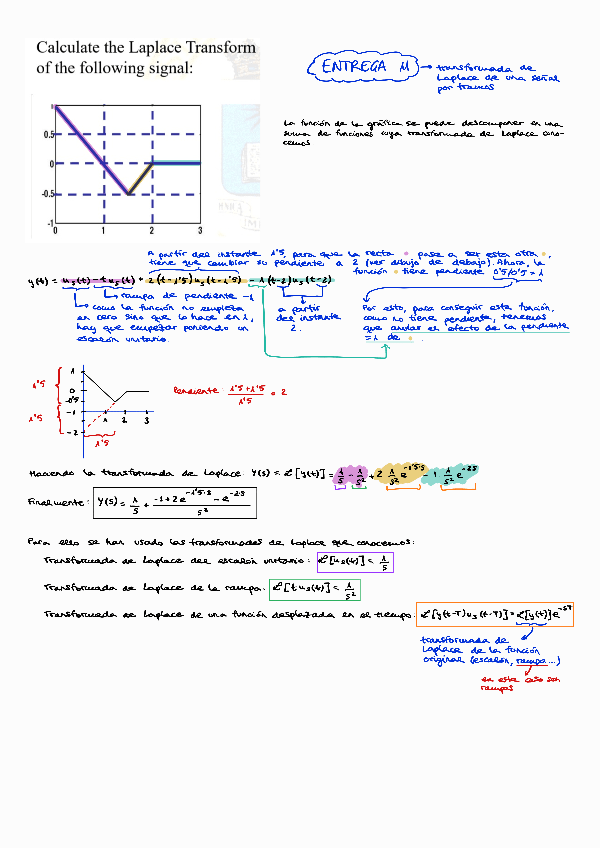 Calculate the Laplace Transform
of the following signal:
ENTREGA 11 → transformada de
Laplace de una señal
por tramos
La función de la gráfica se puede descomponer en una
suma de funciones cuya transformada de Laplace cono-
cemos
0.5
0
-0.5
-1
0 1 2 3
A partir del instante 1'5, para que la recta pasa a ser esta otra,
tiene que cambiar su pendiente a 2 (ver dibujo de debajo). Ahora, la
función tiene pendiente 0'5/0'5 = 1
y(t) = us(t) - t us(t) + 2 (t-1'5) us (t-1'5) - 1 (t-2) us (t-2)
rampa de pendiente -1
como la función no empieza
en cero sino que lo hace en 1,
hay que empezar poniendo un
escalón unitario.
a partir
del instante
2.
Por esto, para conseguir esta función,
como no tiene pendiente, tenemos
que anular el efecto de la pendiente
= 1 de .
1'5
1'5
1
0
-0'5
-1
-2
1 2 3
1'5
Pendiente: (1'5+1'5)/1'5 = 2
Haciendo la transformada de Laplace: Y(s) = ℒ[y(t)] = 1/s - 1/s² + 2 1/s² e^(-1'5·s) - 1 1/s² e^(-2s)
Finalmente: Y(s) = 1/s + (-1 + 2e^(-1'5·s) - e^(-2·s))/s²
Para ello se han usado las transformadas de Laplace que conocemos:
Transformada de Laplace del escalón unitario: ℒ[us(t)] = 1/s
Transformada de Laplace de la rampa: ℒ[t us(t)] = 1/s²
Transformada de Laplace de una función desplazada en el tiempo: ℒ[y(t-T) us (t-T)] = ℒ[y(t)] e^(-sT)
transformada de
Laplace de la función
original (escalón, rampa...)
en este caso son
rampas